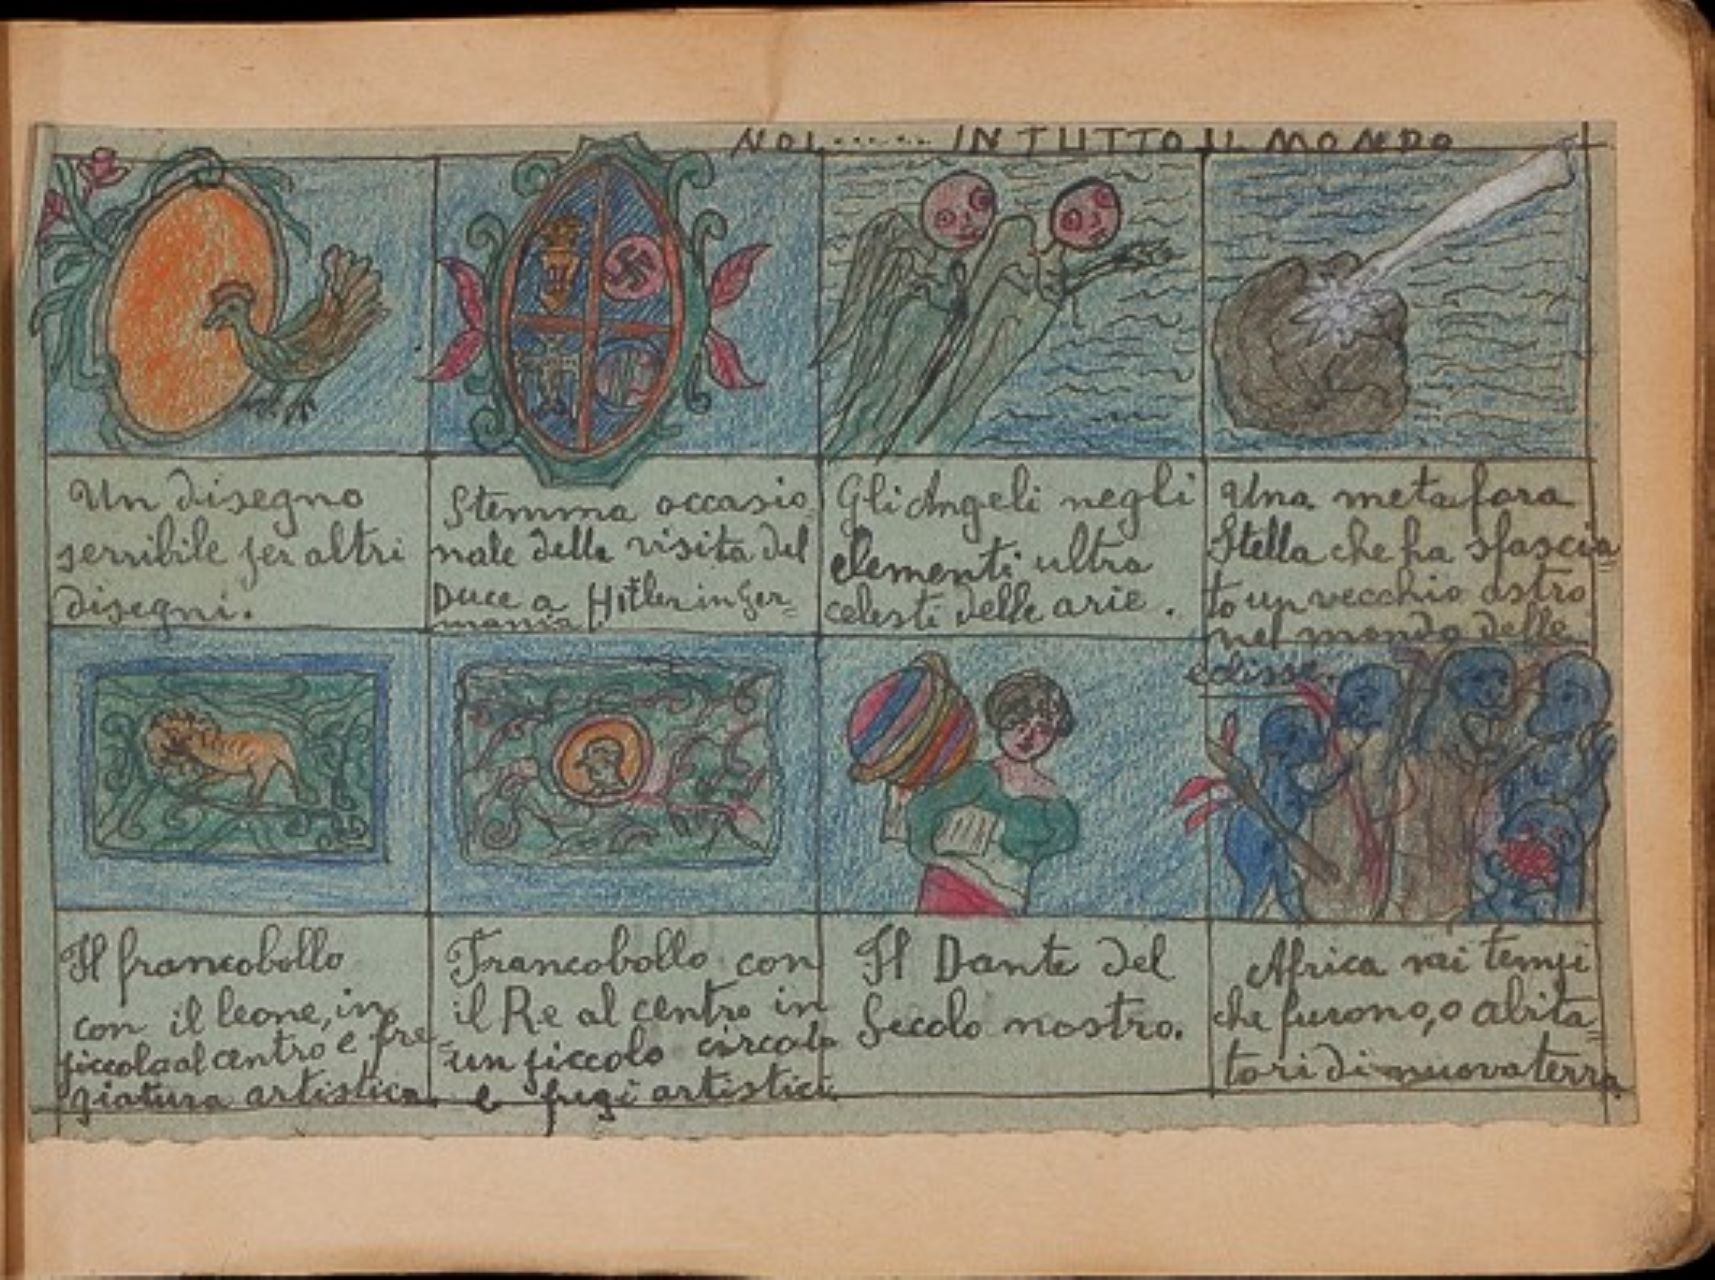 NOI...... IN TUTTO IL MONDO
Un disegno
serribile per altri
disegni.
Stemma occasio
nale della visita del
Duce a Hitler in Ger-
mania.
Gli Angeli negli
elementi ultra
celesti delle arie.
Una metafora
Stella che ha sfascia
to un vecchio astro
nel mondo delle
eclisse.
Il francobollo
con il leone, in
piccola al centro e fre-
giatura artistica.
Francobollo con
il Re al centro in
un piccolo circolo
e fregi artistici
Il Dante del
Secolo nostro.
Africa nei tempi
che furono, o abita-
tori di nuova terra